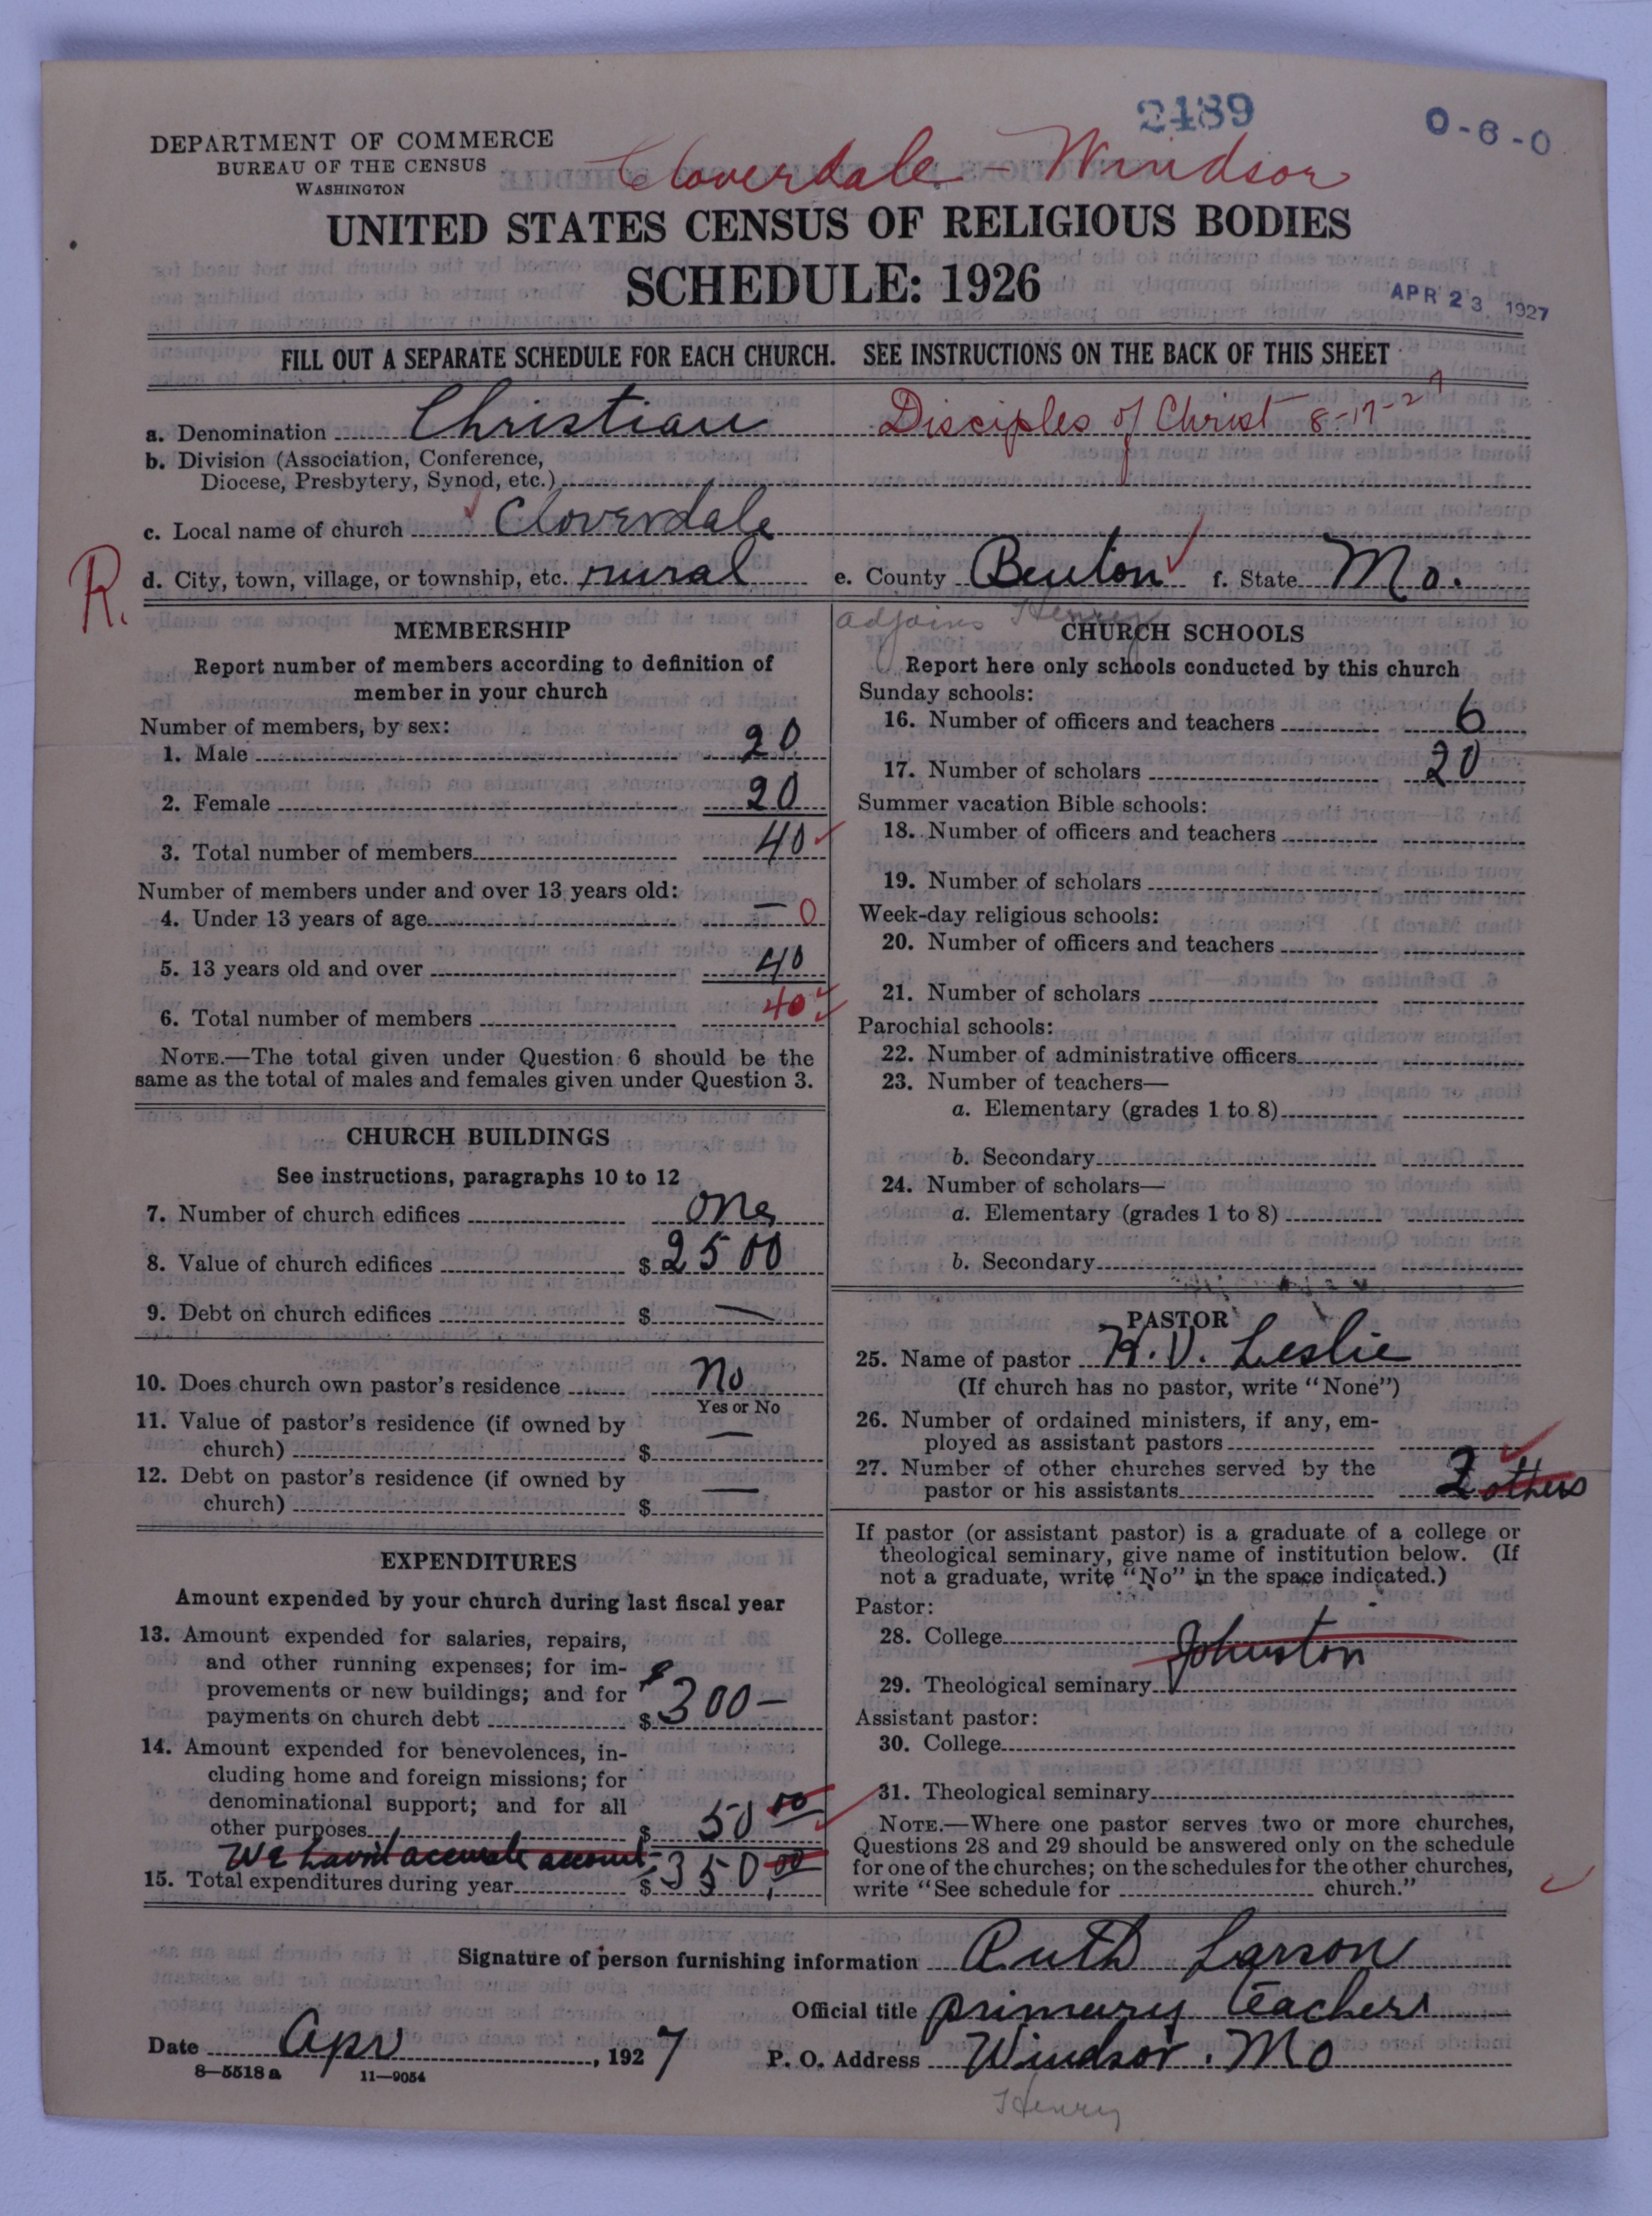 2489
0-6-0
DEPARTMENT OF COMMERCE
BUREAU OF THE CENSUS
WASHINGTON
Cloverdale - Windsor
UNITED STATES CENSUS OF RELIGIOUS BODIES
SCHEDULE: 1926
APR 23 1927
FILL OUT A SEPARATE SCHEDULE FOR EACH CHURCH. SEE INSTRUCTIONS ON THE BACK OF THIS SHEET
a. Denomination Christian Disciples of Christ 8-17-27
b. Division (Association, Conference,
Diocese, Presbytery, Synod, etc.)
c. Local name of church Cloverdale
R. d. City, town, village, or township, etc. rural e. County Benton f. State Mo.
adjoins Henry
MEMBERSHIP
Report number of members according to definition of
member in your church
Number of members, by sex:
1. Male 20
2. Female 20
3. Total number of members 40
Number of members under and over 13 years old:
4. Under 13 years of age — 0
5. 13 years old and over 40
6. Total number of members 40
NOTE.—The total given under Question 6 should be the
same as the total of males and females given under Question 3.
CHURCH BUILDINGS
See instructions, paragraphs 10 to 12
7. Number of church edifices one
8. Value of church edifices $ 2500
9. Debt on church edifices $ —
10. Does church own pastor's residence No
Yes or No
11. Value of pastor's residence (if owned by
church) $ —
12. Debt on pastor's residence (if owned by
church) $ —
EXPENDITURES
Amount expended by your church during last fiscal year
13. Amount expended for salaries, repairs,
and other running expenses; for im-
provements or new buildings; and for
payments on church debt $ $300—
14. Amount expended for benevolences, in-
cluding home and foreign missions; for
denominational support; and for all
other purposes $ 50 00
We havn't accurate account
15. Total expenditures during year $ 350,00
CHURCH SCHOOLS
Report here only schools conducted by this church
Sunday schools:
16. Number of officers and teachers 6
17. Number of scholars 20
Summer vacation Bible schools:
18. Number of officers and teachers
19. Number of scholars
Week-day religious schools:
20. Number of officers and teachers
21. Number of scholars
Parochial schools:
22. Number of administrative officers
23. Number of teachers—
a. Elementary (grades 1 to 8)
b. Secondary
24. Number of scholars—
a. Elementary (grades 1 to 8)
b. Secondary
PASTOR
25. Name of pastor H. V. Leslie
(If church has no pastor, write "None")
26. Number of ordained ministers, if any, em-
ployed as assistant pastors
27. Number of other churches served by the
pastor or his assistants 2 others
If pastor (or assistant pastor) is a graduate of a college or
theological seminary, give name of institution below. (If
not a graduate, write "No" in the space indicated.)
Pastor:
28. College Johnston
29. Theological seminary
Assistant pastor:
30. College
31. Theological seminary
NOTE.—Where one pastor serves two or more churches,
Questions 28 and 29 should be answered only on the schedule
for one of the churches; on the schedules for the other churches,
write "See schedule for church."
Signature of person furnishing information Ruth Larson
Official title primary teachers
Date Apr, 1927 P. O. Address Windsor. Mo
8—5518 a 11—9054
Henry